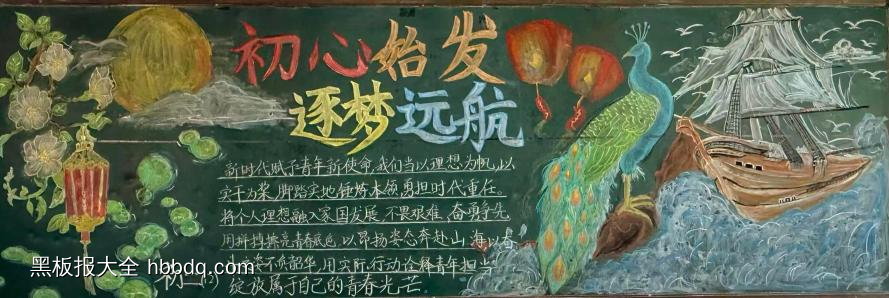 初心始发
逐梦远航
新时代赋予青年新使命,我们当以理想为帆,以
实干为桨,脚踏实地锤炼本领,勇担时代重任。
将个人理想融入家国发展,不畏艰难,奋勇争先
用拼搏擦亮青春底色,以昂扬姿态奔赴山海以青
不负韶华,用实际行动诠释青年担当
绽放属于自己的青春光芒.
初二
黑板报大全 hbbdq.com